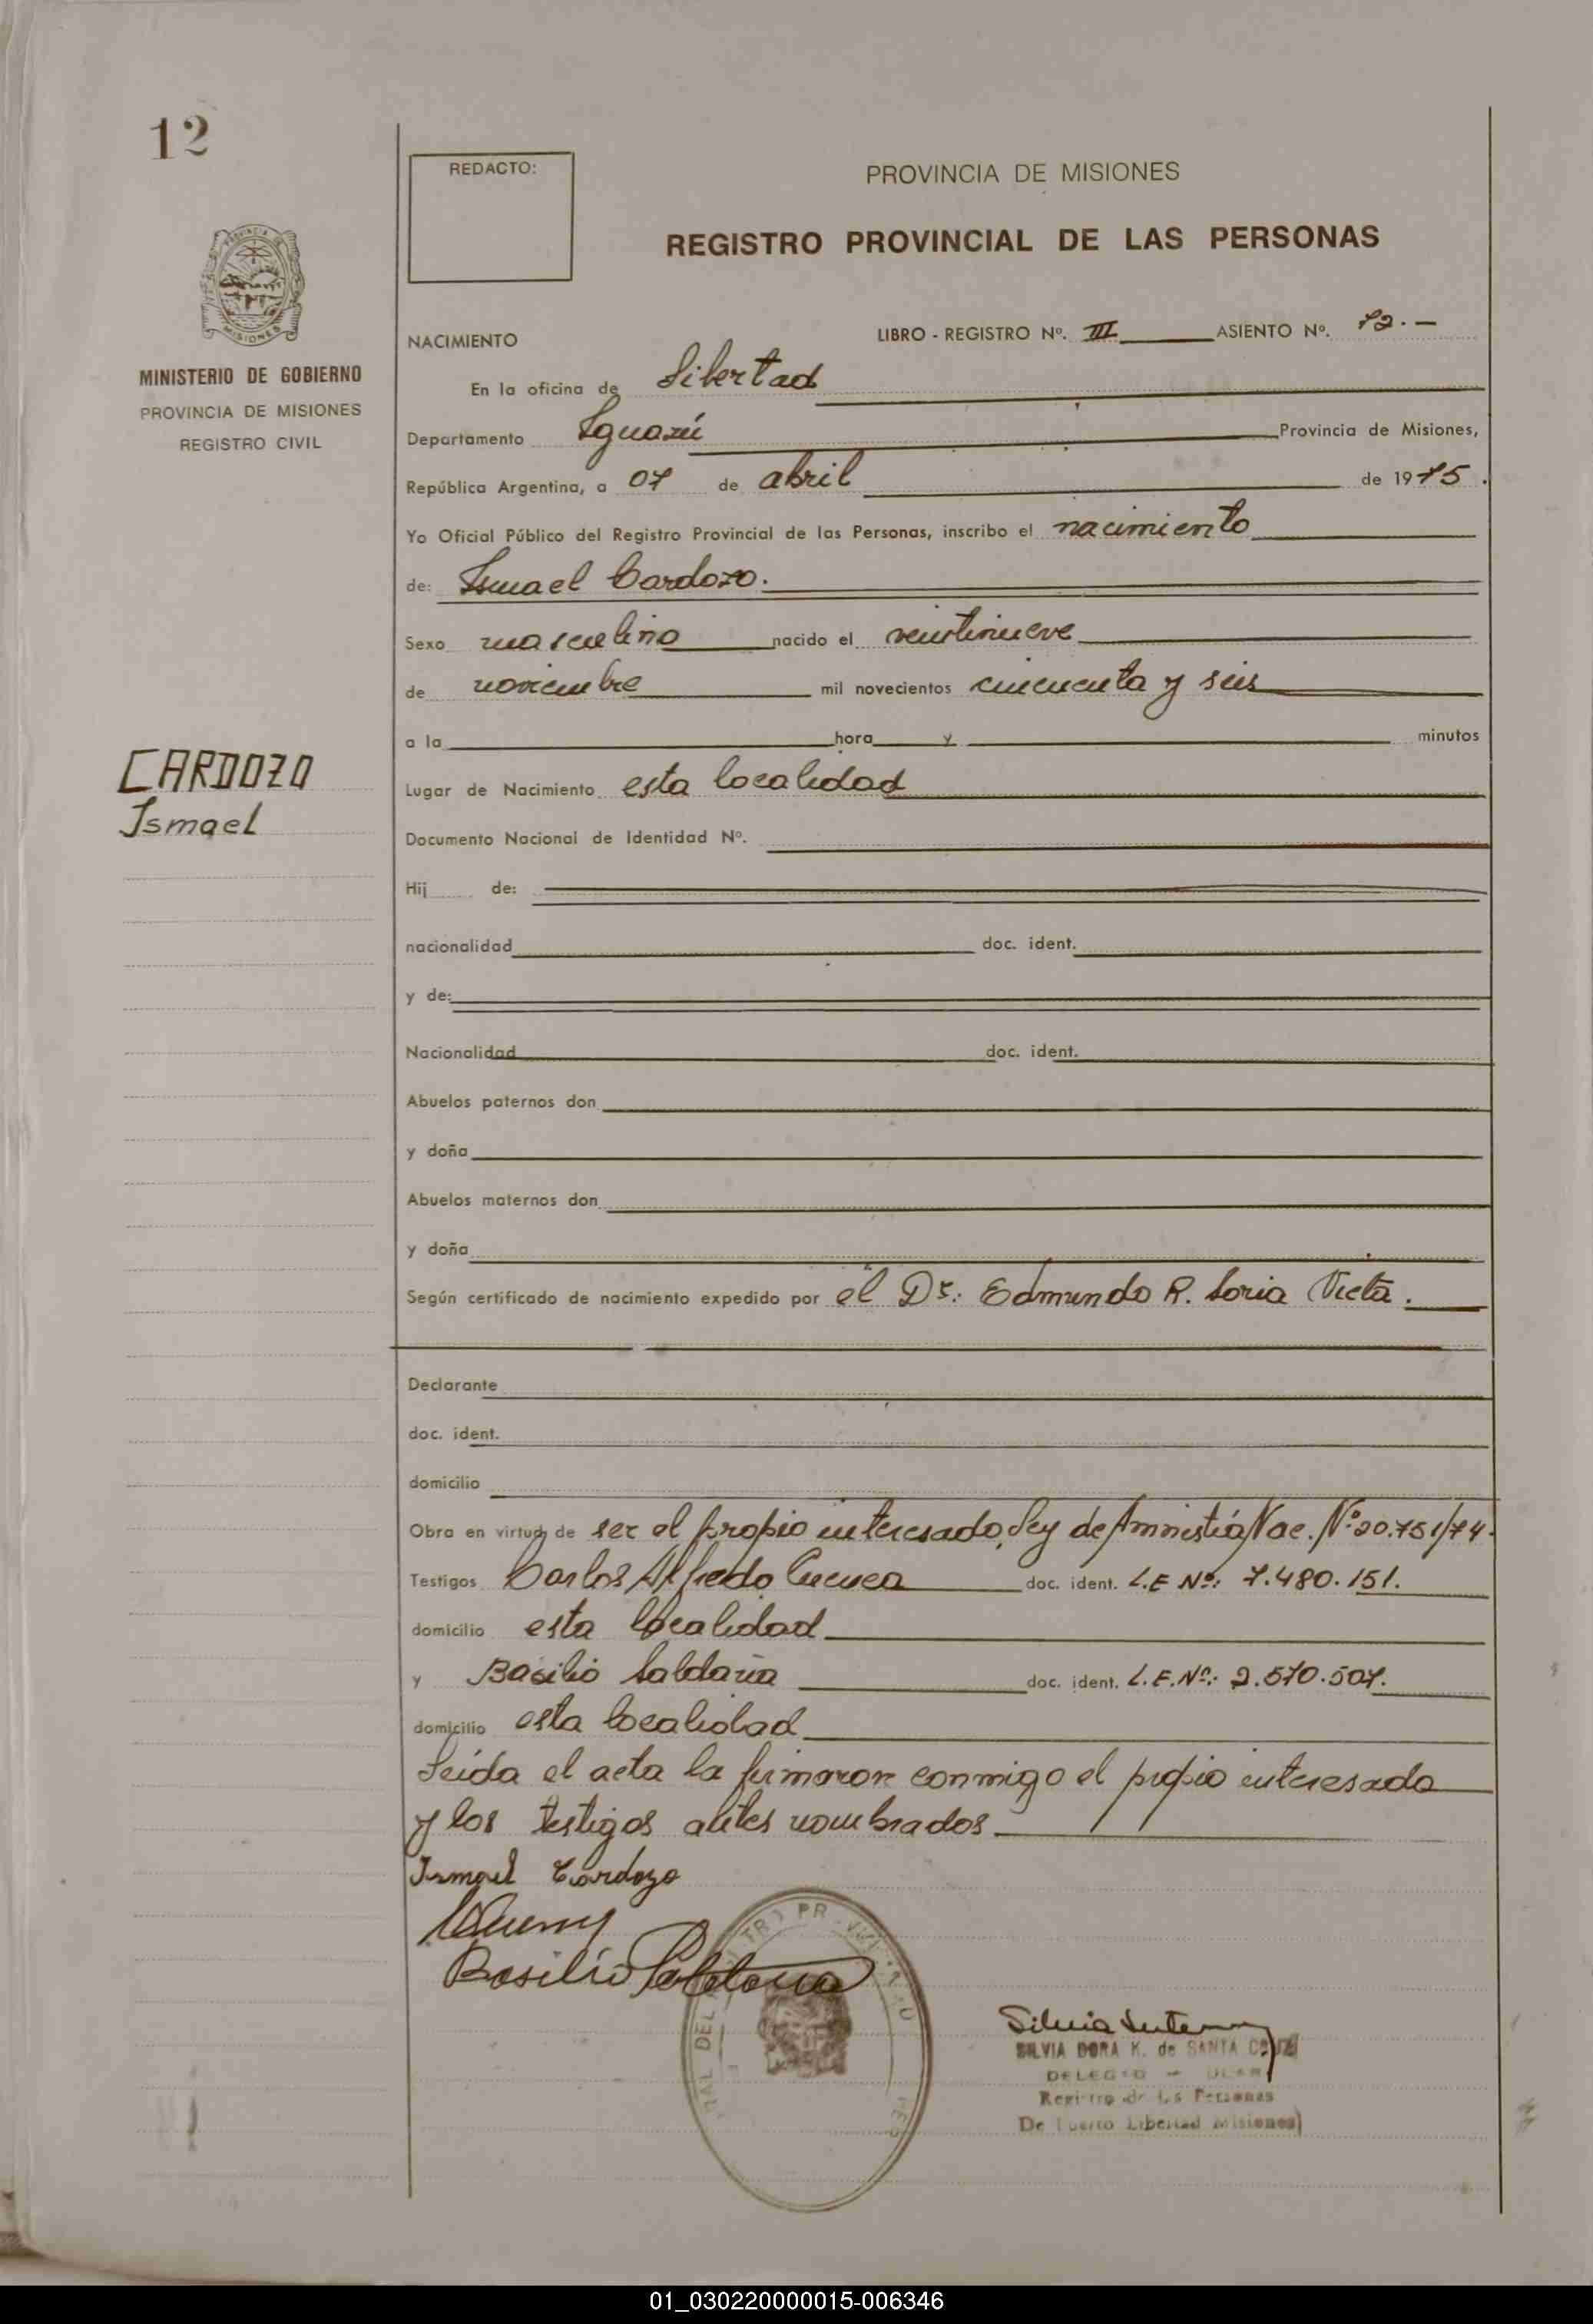 12
REDACTO:
PROVINCIA DE MISIONES
REGISTRO PROVINCIAL DE LAS PERSONAS
PROVINCIA DE
MISIONES
MINISTERIO DE GOBIERNO
PROVINCIA DE MISIONES
REGISTRO CIVIL
NACIMIENTO
LIBRO - REGISTRO Nº. III ASIENTO Nº. 12.-
En la oficina de Libertad
Departamento Iguazú Provincia de Misiones,
República Argentina, a 07 de abril de 1975.
Yo Oficial Público del Registro Provincial de las Personas, inscribo el nacimiento
de: Ismael Cardozo.
Sexo masculino nacido el veintinueve
de noviembre mil novecientos cincuenta y seis
a la hora y minutos
CARDOZO
Ismael
Lugar de Nacimiento esta localidad
Documento Nacional de Identidad Nº.
Hij de:
nacionalidad doc. ident.
y de:
Nacionalidad doc. ident.
Abuelos paternos don
y doña
Abuelos maternos don
y doña
Según certificado de nacimiento expedido por el Dr.: Edmundo R. Soria Vieta.
Declarante
doc. ident.
domicilio
Obra en virtud de ser el propio interesado, Ley de Amnistía Nac. Nº 20.751/74.
Testigos Carlos Alfredo Cuenca doc. ident. L.E Nº: 7.480.151.
domicilio esta localidad
y Basilio Saldaña doc. ident. L.E.Nº: 2.570.507.
domicilio esta localidad
Leída el acta la firmaron conmigo el propio interesado
y los testigos antes nombrados.
Ismael Cardozo
Basilio Saldaña
Silvia
SILVIA DORA K. de SANTA CRUZ
Registro de las Personas
De Puerto Libertad Misiones)
01_030220000015-006346